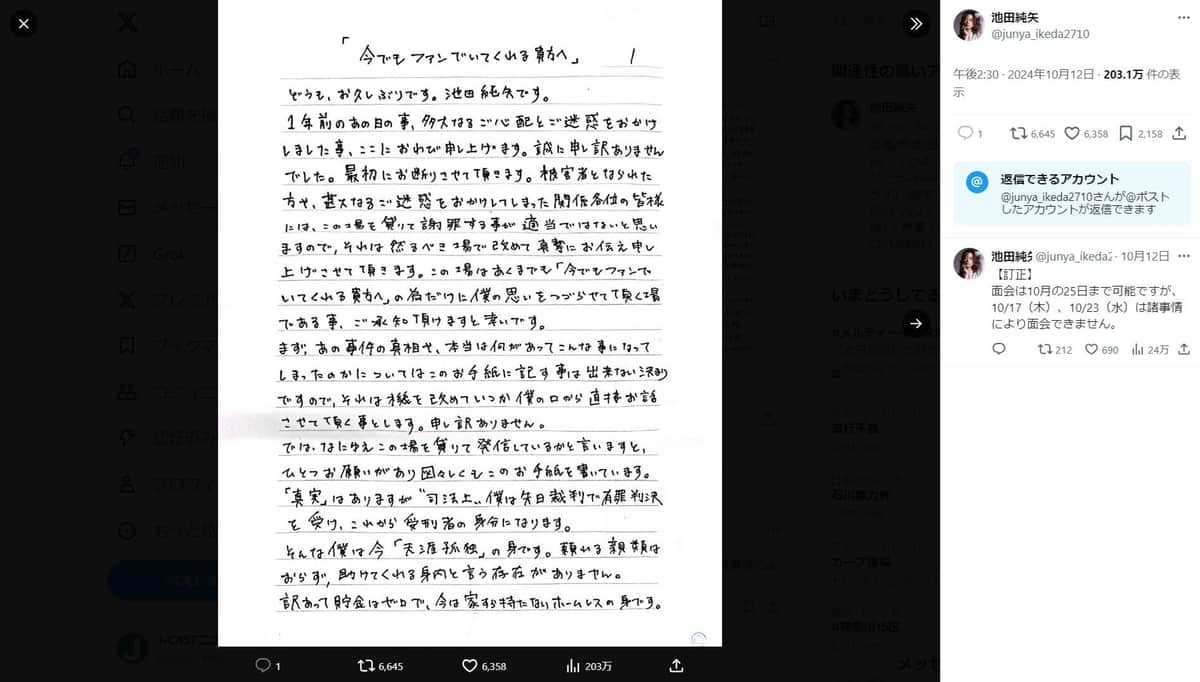 「今でもファンでいてくれる貴方へ」 1
どうも、お久しぶりです。池田純矢です。
1年前のあの日の事、多大なるご心配とご迷惑をおかけ
しました事、ここにおわび申し上げます。誠に申し訳ありません
でした。最初にお断りさせて頂きます。被害者となられた
方や、甚大なるご迷惑をおかけしてしまった関係各位の皆様
には、この場を貸りて謝罪する事が適当ではないと思い
ますので、それは然るべき場で改めて真摯にお伝え申し
上げさせて頂きます。この場はあくまでも「今でもファンで
いてくれる貴方へ」の為だけに僕の思いをつづらせて頂く場
である事、ご承知頂けますと幸いです。
まず、あの事件の真相や、本当は何があってこんな事になって
しまったのかについてはこのお手紙に記す事は出来ない決まり
ですので、それは機を改めていつか僕の口から直接お話
させて頂く事とします。申し訳ありません。
では、なにゆえこの場を貸りて発信しているかと言いますと、
ひとつお願いがあり図々しくもこのお手紙を書いています。
「真実」はありますが“司法上„僕は先日裁判で有罪判決
を受け、これから受刑者の身分になります。
そんな僕は今「天涯孤独」の身です。頼れる親類は
おらず、助けてくれる身内と言う存在がありません。
訳あって貯金はゼロで、今は家すら持たないホームレスの身です。
1 6,645 6,358 203万
池田純矢
@junya_ikeda2710
午後2:30 · 2024年10月12日 · 203.1万 件の表
示
1 6,645 6,358 2,158
返信できるアカウント
@junya_ikeda2710さんが@ポスト
したアカウントが返信できます
池田純矢 @junya_ikeda2 · 10月12日
【訂正】
面会は10月の25日まで可能ですが、
10/17（木）、10/23（水）は諸事情
により面会できません。
212 690 24万